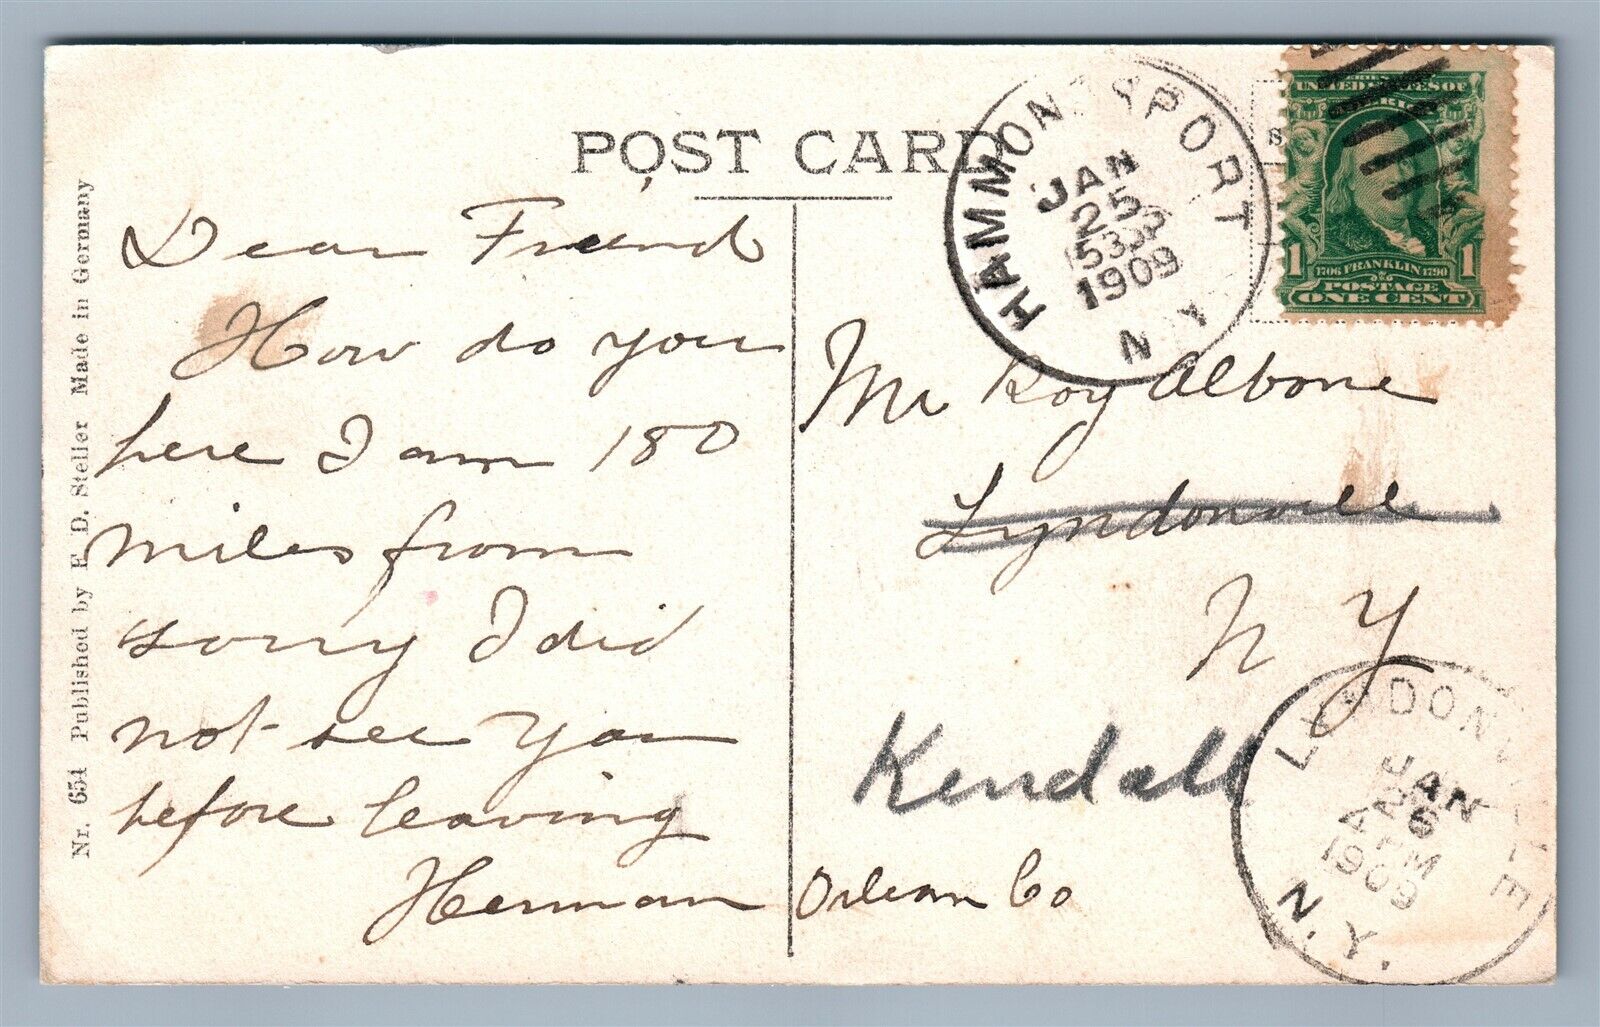 POST CARD
HAMMONDSPORT
JAN
25
1909
N.Y.
SERIES 1902
UNITED STATES OF
AMERICA
1706 FRANKLIN 1790
1 1
POSTAGE
ONE CENT
Dear Friend
How do you
here I am 180
miles from
sorry I did
not see You
before leaving
Herman
Mr Roy Albone
Lyndonville
N Y
Kendall
Orlean Co
LYNDONVILLE
JAN
26
1909
N.Y.
Nr. 651 Published by E. D. Steller Made in Germany